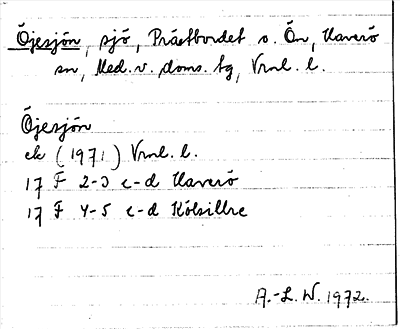 Öjesjön, sjö, Prästbordet o. Ön, Haverö
sn, Med. v. doms. tg, Vrnl. l.
Öjesjön
ek (1971) Vrnl. l.
17 F 2-3 c-d Haverö
17 F 4-5 c-d Kölsillre
A.-L. W. 1972.